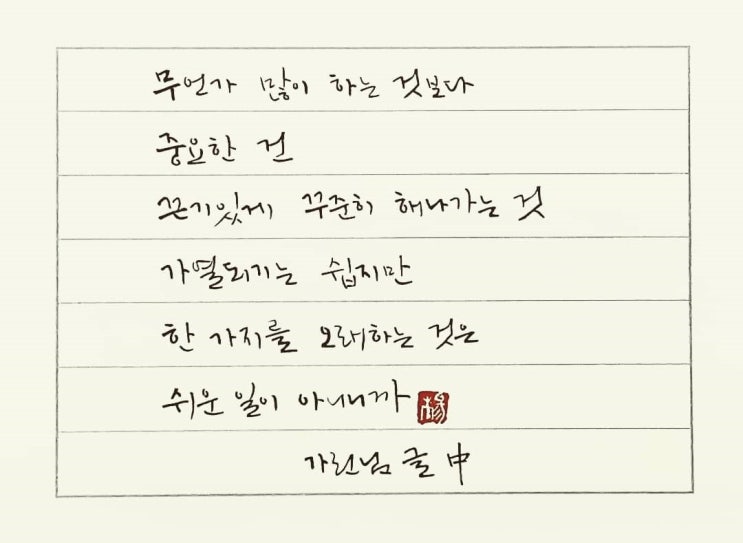 무언가 많이 하는 것보다
중요한 건
끈기있게 꾸준히 해나가는 것
가열되기는 쉽지만
한 가지를 오래하는 것은
쉬운 일이 아니니까
가린님 글 中